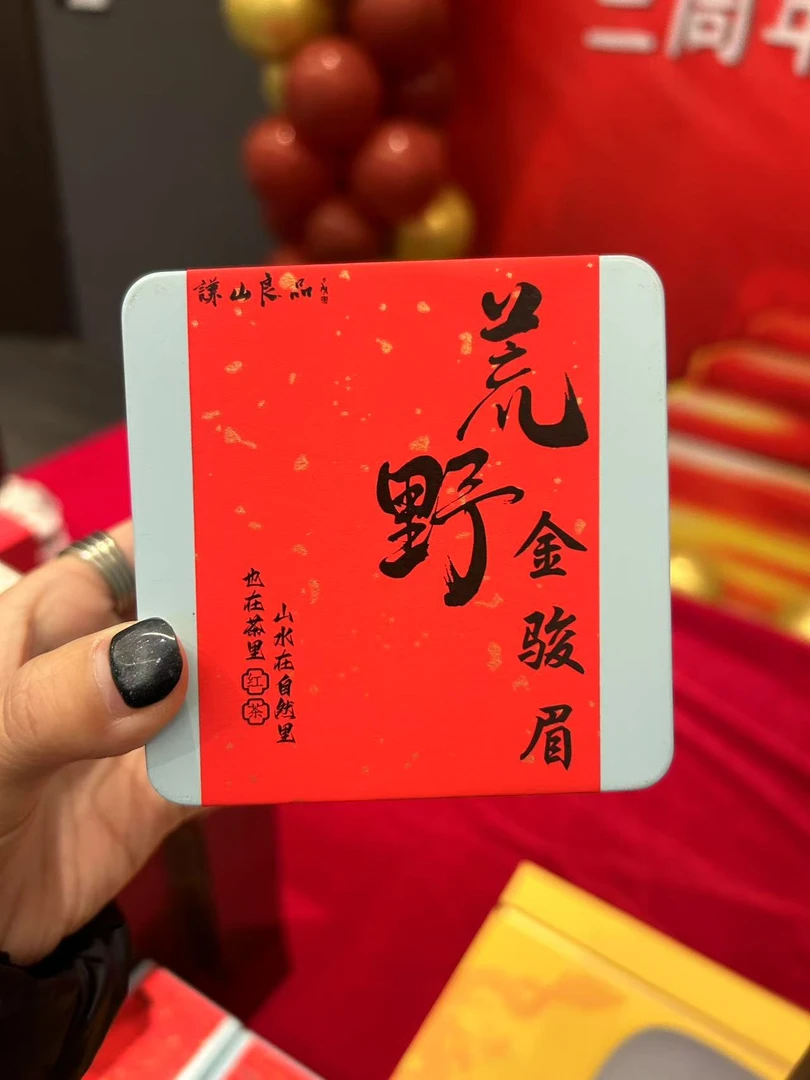 謙山良品
荒野
金骏眉
山水在自然里
也在茶里
红茶
三周年